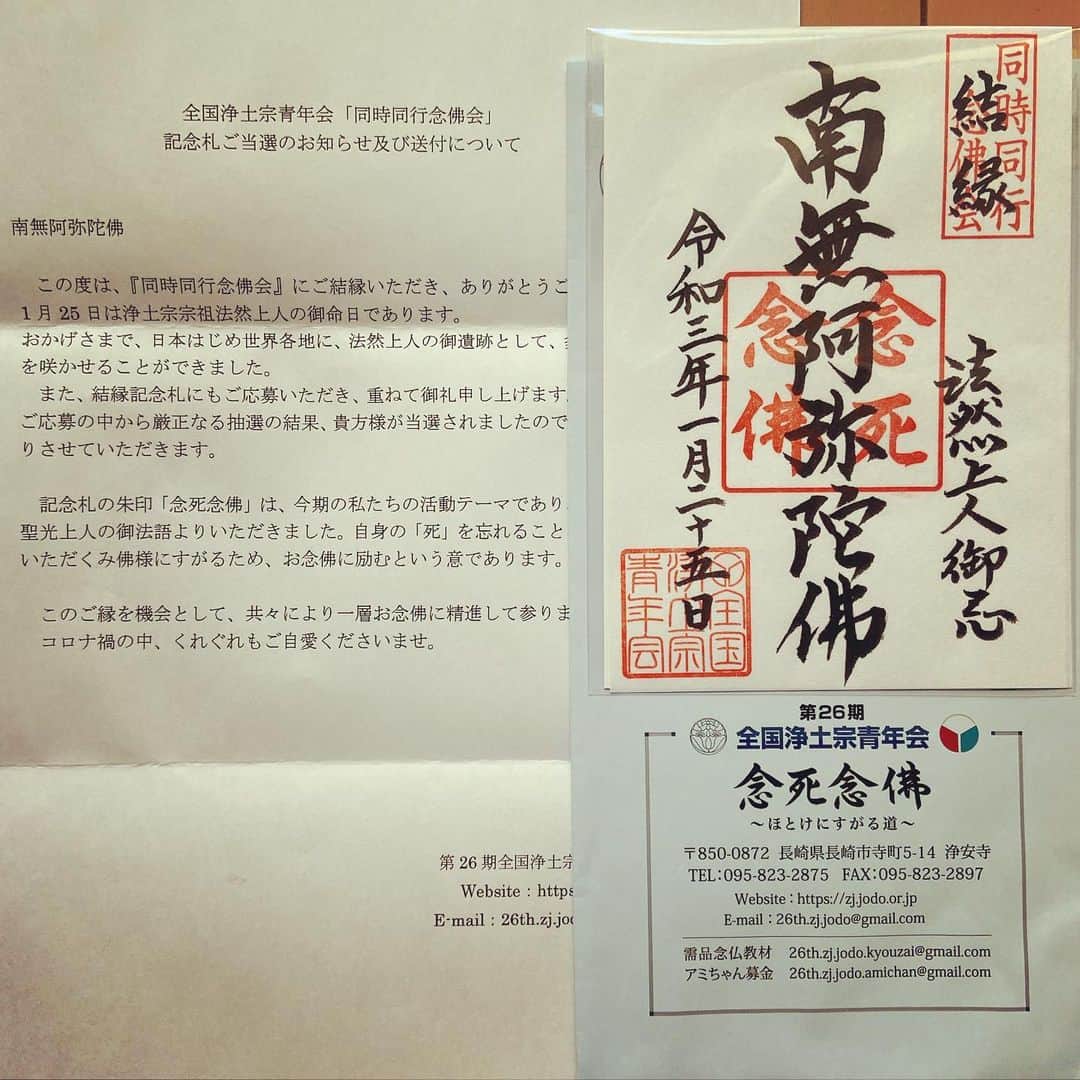 全国浄土宗青年会「同時同行念佛会」
記念札ご当選のお知らせ及び送付について
南無阿弥陀佛
この度は、『同時同行念佛会』にご結縁いただき、ありがとうご
1月25日は浄土宗宗祖法然上人の御命日であります。
おかげさまで、日本はじめ世界各地に、法然上人の御遺跡として、
を咲かせることができました。
また、結縁記念札にもご応募いただき、重ねて御礼申し上げます。
ご応募の中から厳正なる抽選の結果、貴方様が当選されましたので
りさせていただきます。
記念札の朱印「念死念佛」は、今期の私たちの活動テーマであり
聖光上人の御法語よりいただきました。自身の「死」を忘れること
いただくみ佛様にすがるため、お念佛に励むという意であります。
このご縁を機会として、共々により一層お念佛に精進して参りま
コロナ禍の中、くれぐれもご自愛くださいませ。
第26期全国浄土宗
Website：https
E-mail：26th.zj.jodo
同時同行
念佛会
結縁
法然上人御忌
南無阿弥陀佛
念死
念佛
令和三年一月二十五日
全国
浄土宗
青年会
第26期
全国浄土宗青年会
念死念佛
～ほとけにすがる道～
〒850-0872 長崎県長崎市寺町5-14 浄安寺
TEL：095-823-2875 FAX：095-823-2897
Website：https://zj.jodo.or.jp
E-mail：26th.zj.jodo@gmail.com
需品念仏教材 26th.zj.jodo.kyouzai@gmail.com
アミちゃん募金 26th.zj.jodo.amichan@gmail.com